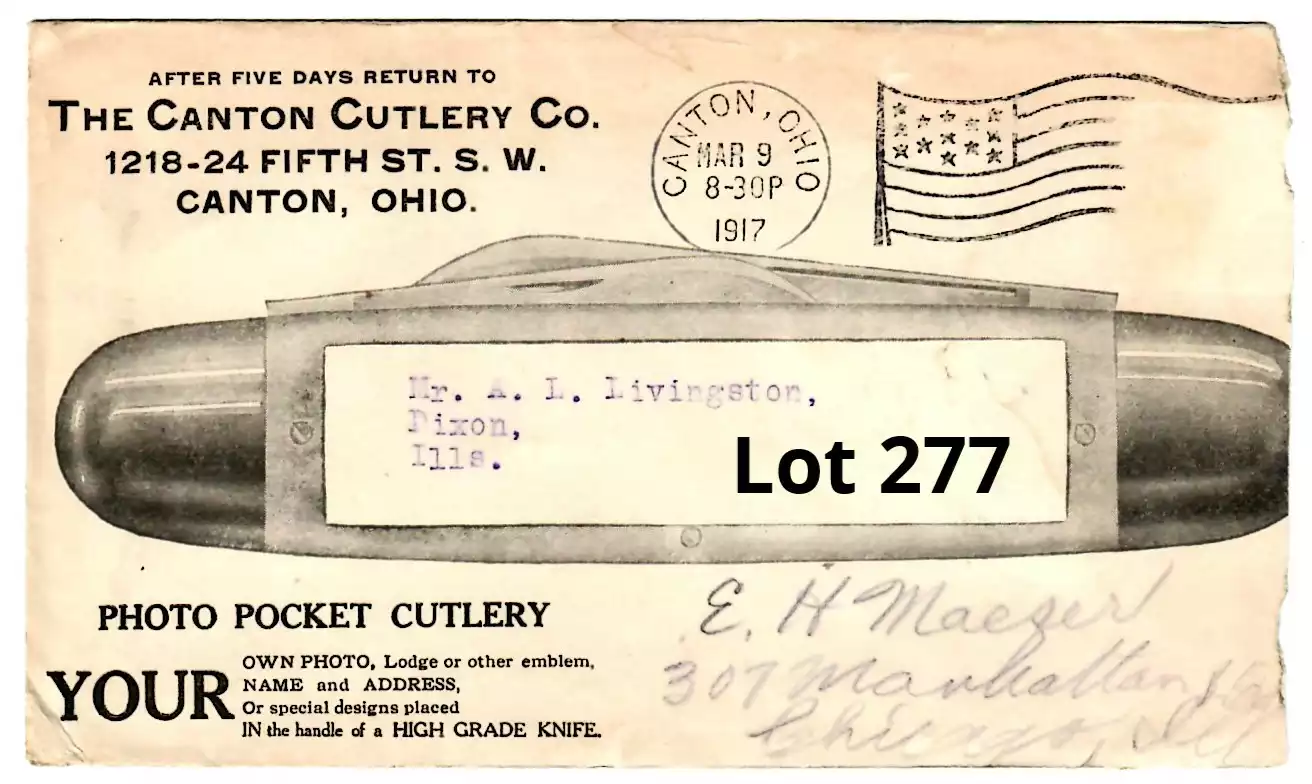 AFTER FIVE DAYS RETURN TO
THE CANTON CUTLERY CO.
1218-24 FIFTH ST. S. W.
CANTON, OHIO.
CANTON, OHIO
MAR 9
8-30P
1917
Mr. A. L. Livingston,
Dixon,
Ills.
Lot 277
PHOTO POCKET CUTLERY
YOUR
OWN PHOTO, Lodge or other emblem,
NAME and ADDRESS,
Or special designs placed
IN the handle of a HIGH GRADE KNIFE.
E. H Maeser
307 Manhattan
Chicago, Ill